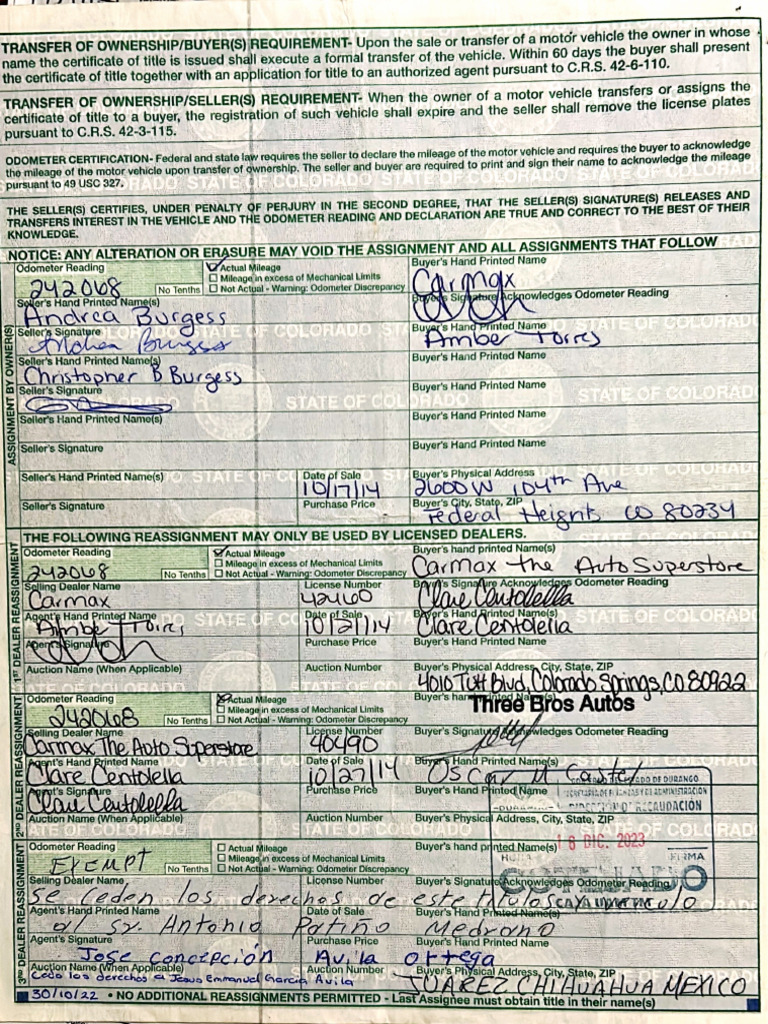 TRANSFER OF OWNERSHIP/BUYER(S) REQUIREMENT- Upon the sale or transfer of a motor vehicle the owner in whose
name the certificate of title is issued shall execute a formal transfer of the vehicle. Within 60 days the buyer shall present
the certificate of title together with an application for title to an authorized agent pursuant to C.R.S. 42-6-110.
TRANSFER OF OWNERSHIP/SELLER(S) REQUIREMENT- When the owner of a motor vehicle transfers or assigns the
certificate of title to a buyer, the registration of such vehicle shall expire and the seller shall remove the license plates
pursuant to C.R.S. 42-3-115.
ODOMETER CERTIFICATION- Federal and state law requires the seller to declare the mileage of the motor vehicle and requires the buyer to acknowledge
the mileage of the motor vehicle upon transfer of ownership. The seller and buyer are required to print and sign their name to acknowledge the mileage
pursuant to 49 USC 327.
THE SELLER(S) CERTIFIES, UNDER PENALTY OF PERJURY IN THE SECOND DEGREE, THAT THE SELLER(S) SIGNATURE(S) RELEASES AND
TRANSFERS INTEREST IN THE VEHICLE AND THE ODOMETER READING AND DECLARATION ARE TRUE AND CORRECT TO THE BEST OF THEIR
KNOWLEDGE.
NOTICE: ANY ALTERATION OR ERASURE MAY VOID THE ASSIGNMENT AND ALL ASSIGNMENTS THAT FOLLOW
ASSIGNMENT BY OWNER(S)
Odometer Reading
242068
No Tenths
Actual Mileage
Mileage in excess of Mechanical Limits
Not Actual - Warning: Odometer Discrepancy
Buyer's Hand Printed Name
Carmax
Seller's Hand Printed Name(s)
Andrea Burgess
Buyer's Signature Acknowledges Odometer Reading
Seller's Signature
Andrea Burgess
Buyer's Hand Printed Name
Amber Torres
Seller's Hand Printed Name(s)
Christopher B Burgess
Buyer's Hand Printed Name
Seller's Signature
Buyer's Hand Printed Name
Seller's Hand Printed Name(s)
Buyer's Hand Printed Name
Seller's Signature
Buyer's Hand Printed Name
Seller's Hand Printed Name(s)
Date of Sale
10/17/14
Buyer's Physical Address
2600 W 104th Ave
Seller's Signature
Purchase Price
Buyer's City, State, ZIP
Federal Heights CO 80234
THE FOLLOWING REASSIGNMENT MAY ONLY BE USED BY LICENSED DEALERS.
1ST DEALER REASSIGNMENT
Odometer Reading
242068
No Tenths
Actual Mileage
Mileage in excess of Mechanical Limits
Not Actual - Warning: Odometer Discrepancy
Buyer's hand printed Name(s)
Carmax the Auto Superstore
Selling Dealer Name
Carmax
License Number
42460
Buyer's Signature Acknowledges Odometer Reading
Clare Centolella
Agent's Hand Printed Name
Amber Torres
Date of Sale
10/21/14
Buyer's Hand Printed Name
Clare Centolella
Agent's Signature
Purchase Price
Buyer's Hand Printed Name
Auction Name (When Applicable)
Auction Number
Buyer's Physical Address, City, State, ZIP
4016 Tutt Blvd, Colorado Springs, CO 80922
2ND DEALER REASSIGNMENT
Odometer Reading
242068
No Tenths
Actual Mileage
Mileage in excess of Mechanical Limits
Not Actual - Warning: Odometer Discrepancy
Buyer's hand printed Name(s)
Three Bros Autos
Selling Dealer Name
Carmax The Auto Superstore
License Number
40490
Buyer's Signature Acknowledges Odometer Reading
Agent's Hand Printed Name
Clare Centolella
Date of Sale
10/27/14
Buyer's Hand Printed Name
Oscar M
Agent's Signature
Clare Centolella
Purchase Price
Buyer's Hand Printed Name
Auction Name (When Applicable)
Auction Number
Buyer's Physical Address, City, State, ZIP
DE DURANGO
DIRECCION DE RECAUDACIÓN
18 DIC. 2023
FIRMA
COTEJADO
3RD DEALER REASSIGNMENT
Odometer Reading
EXEMPT
No Tenths
Actual Mileage
Mileage in excess of Mechanical Limits
Not Actual - Warning: Odometer Discrepancy
Buyer's hand printed Name(s)
Selling Dealer Name
License Number
Buyer's Signature Acknowledges Odometer Reading
se ceden los derechos de este titulo y vehiculo
Agent's Hand Printed Name
Date of Sale
Buyer's Hand Printed Name
al sr. Antonio Patiño Medrano
Agent's Signature
Purchase Price
Buyer's Hand Printed Name
Jose concepción Avila Ortega
Auction Name (When Applicable)
Auction Number
Buyer's Physical Address, City, State, ZIP
Cedo los derechos a Jesus Emmanuel Garcia Avila
JUAREZ CHIHUAHUA MEXICO
30/10/22 • NO ADDITIONAL REASSIGNMENTS PERMITTED - Last Assignee must obtain title in their name(s)